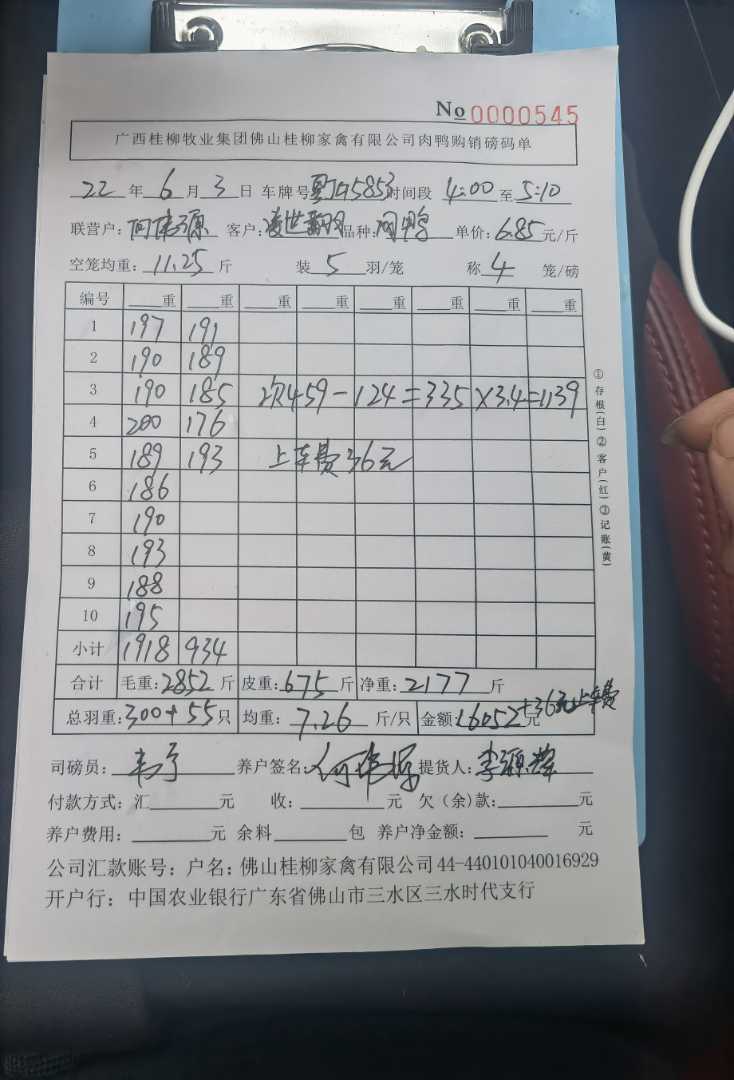 No 0000545
广西桂柳牧业集团佛山桂柳家禽有限公司肉鸭购销磅码单
22年6月3日 车牌号 5853 时间段 4:00至5:10
联营户:何伟源 客户: 品种: 单价:6.85元/斤
空笼均重:11.25斤 装5羽/笼 称4笼/磅
编号 重 重 重 重 重 重 重 重
1 197 191
2 190 189
3 190 185 次459-124=335×3.4=1139
4 200 176
5 189 193 上车费36元
6 186
7 190
8 193
9 188
10 195
小计 1918 934
合计 毛重:2852斤 皮重:675斤 净重:2177斤
总羽重:300+55只 均重:7.26斤/只 金额:16052元+36元上车费
司磅员: 养户签名:何伟源 提货人:李源辉
付款方式:汇 元 收: 元 欠(余)款: 元
养户费用: 元 余料 包 养户净金额: 元
公司汇款账号:户名:佛山桂柳家禽有限公司44-440101040016929
开户行:中国农业银行广东省佛山市三水区三水时代支行
①存根(白)②客户(红)③记账(黄)